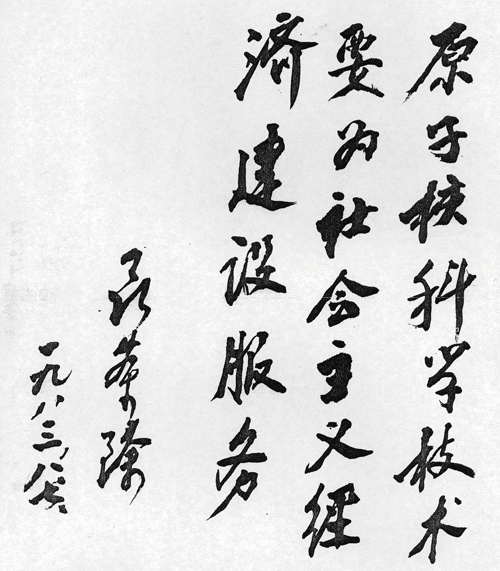 原子核科学技术
要为社会主义经
济建设服务
聂荣臻
一九八三